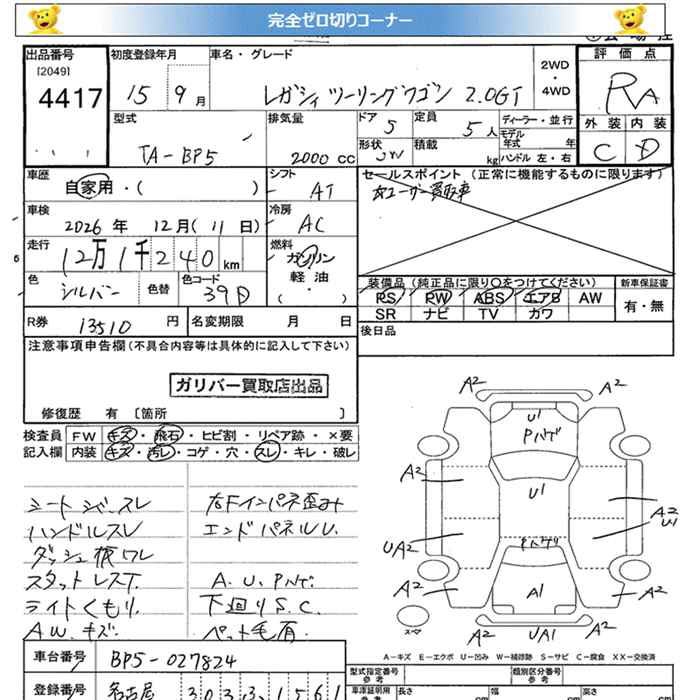 完全ゼロ切りコーナー
出品番号
[2049]
4417
初度登録年月
15 9月
車名・グレード
レガシィ ツーリングワゴン 2.0GT
2WD・4WD
評価点
RA
外装 内装
C D
型式
TA-BP5
排気量
2000cc
ドア 5
形状
定員 5人
積載 kg
ディーラー・並行
モデル年式 年
ハンドル 左・右
車歴
自家用・( )
シフト
AT
車検
2026年 12月(11日)
冷房
AC
走行
12万1千240km
燃料
ガソリン
軽油
( ・ )
色
シルバー
色替
色コード
39D
セールスポイント(正常に機能するものに限ります)
ユーザー買取車
装備品(純正品に限り○をつけてください)
PS PW ABS エアB AW
SR ナビ TV カワ
新車保証書
有・無
R券
13510円
名変期限 月 日
後日品
注意事項申告欄(不具合内容等は具体的に記入して下さい)
ガリバー買取店出品
修復歴 有 [箇所 ]
検査員
記入欄
FW キズ・飛石・ヒビ割・リペア跡・×要
内装 キズ・汚レ・コゲ・穴・スレ・キレ・破レ
シートシワ・スレ
ハンドルスレ
ダッシュ板ワレ
スタットレスT.
ライトくもり.
AW.キズ.
右Fインパネ歪み
エンドパネルU.
A.U.Pハゲ.
下回りS.C.
ペット毛有.
A2 A2
U1
Pハゲ
A2
U1
A2
U1
UA2
Pハゲ
A2
A1
A2
A2 UA1 A2
スペア
A-キズ E-エクボ U-凹み W-補修跡 S-サビ C-腐食 XX-交換済
車台番号
BP5-027824
登録番号
名古屋 303 す 1561
型式指定番号
参考
類別区分番号
参考
車庫証明用
参考
長さ cm
幅 cm
高さ cm